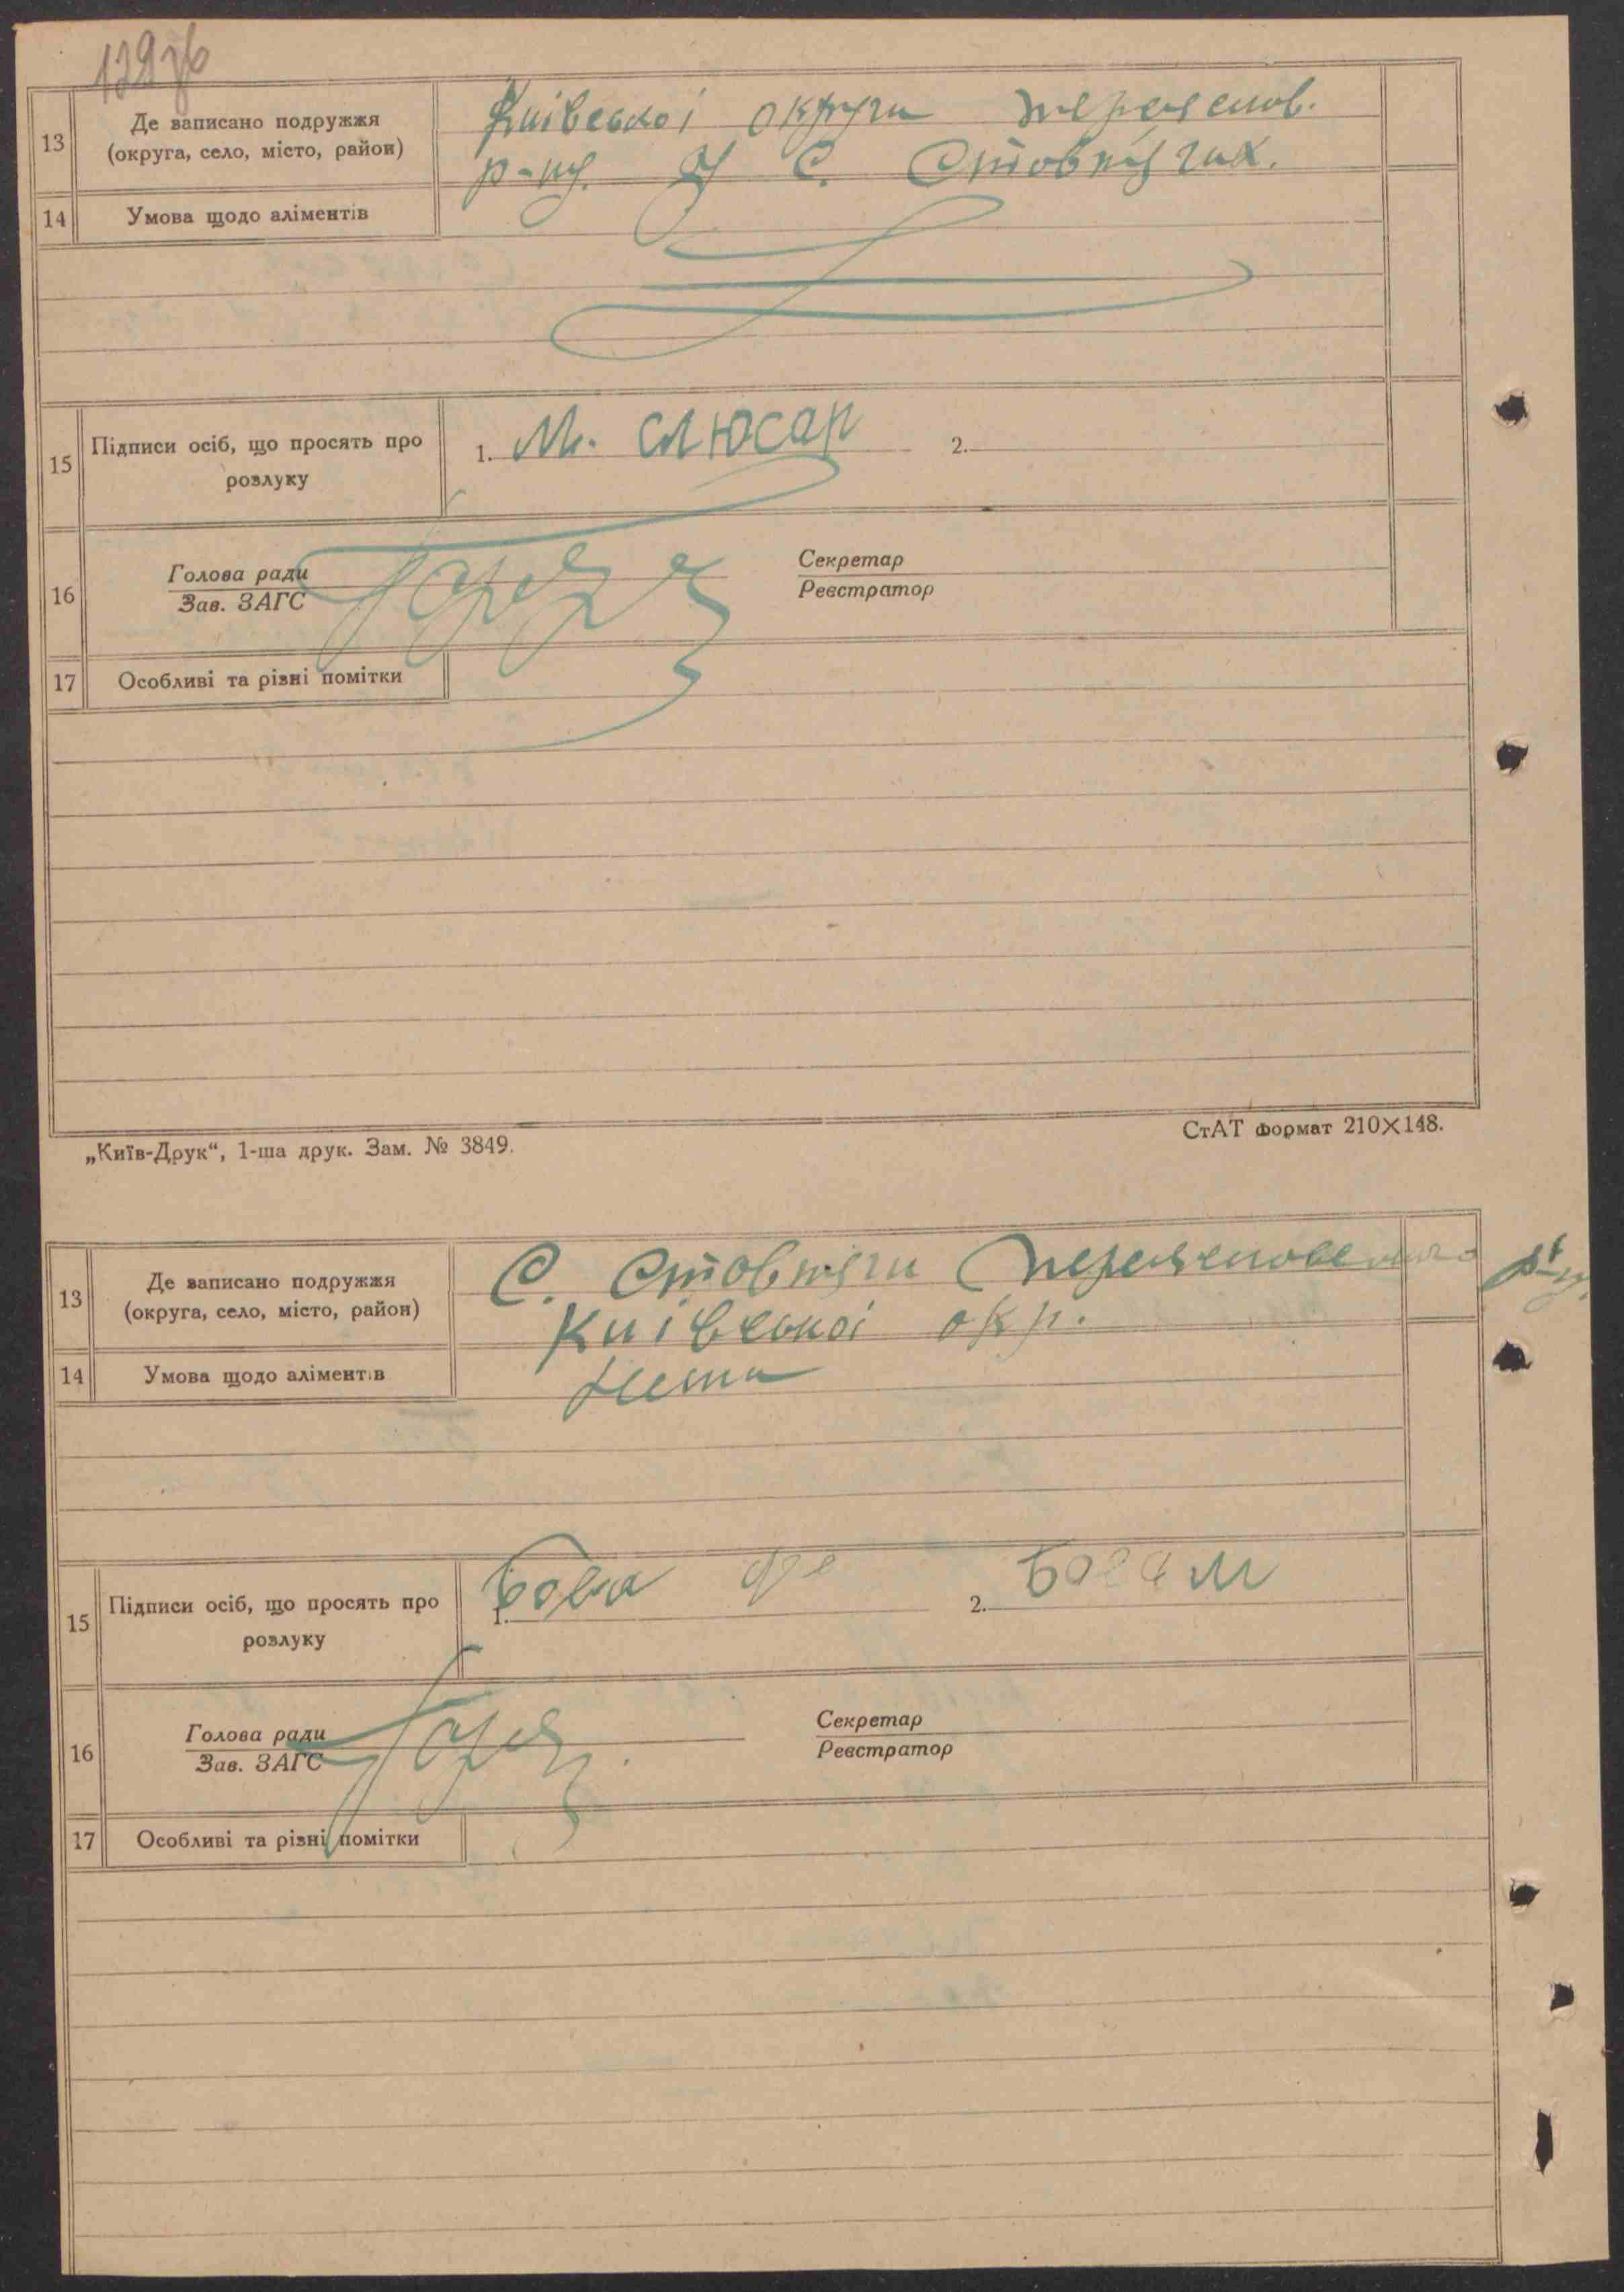 139 зв
13
Де записано подружжя
(округа, село, місто, район)
Київської округи Переяслов.
р-ну. У С. Стовпягах.
14
Умова щодо аліментів
15
Підписи осіб, що просять про
розлуку
1. М. Слюсар
2.
16
Голова ради
Зав. ЗАГС
Секретар
Реєстратор
17
Особливі та різні помітки
„Київ-Друк“, 1-ша друк. Зам. № 3849.
СтАТ формат 210×148.
13
Де записано подружжя
(округа, село, місто, район)
С. Стовпяги Переяславського р-ну.
Київської окр.
14
Умова щодо аліментів
Нема
15
Підписи осіб, що просять про
розлуку
1. Бова
2. Бова М
16
Голова ради
Зав. ЗАГС
Секретар
Реєстратор
17
Особливі та різні помітки